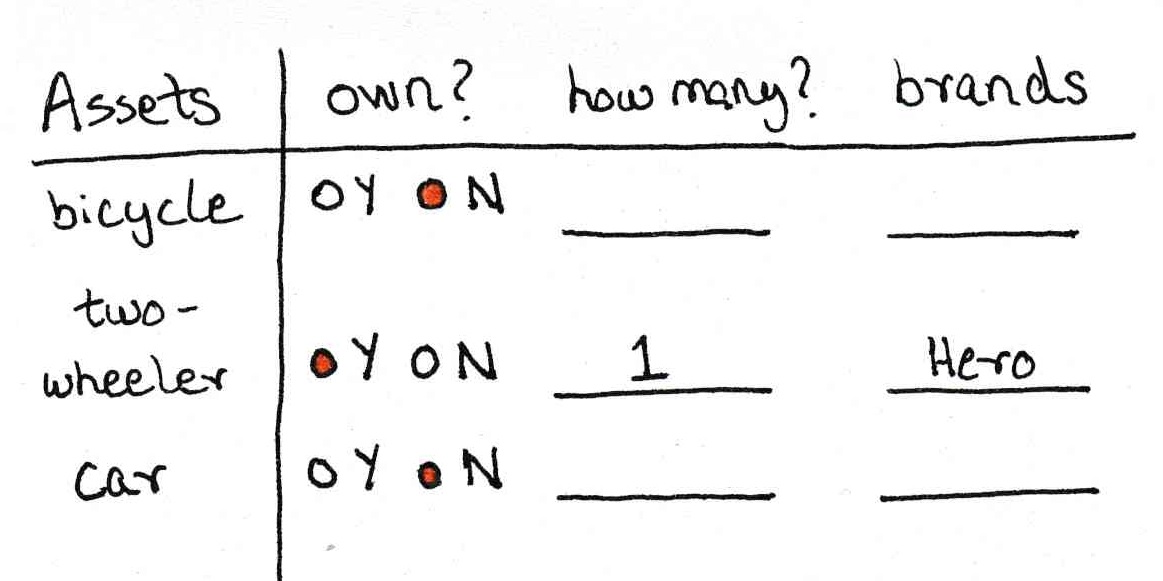 Assets own? how many? brands
bicycle O Y O N
two-
wheeler O Y O N 1 Hero
car O Y O N